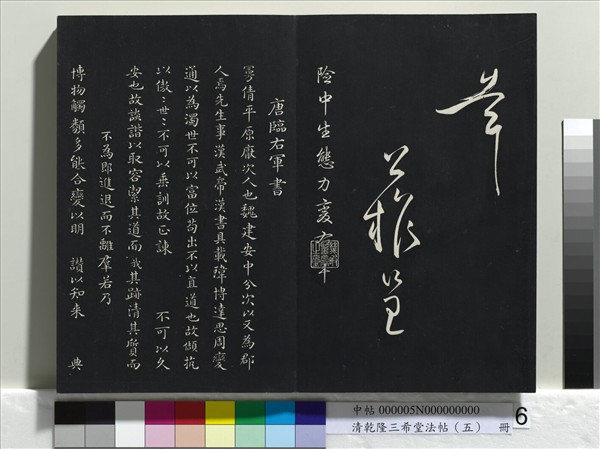 幸
公權呈
險中生態力變右軍
唐臨右軍書
曼倩平原厭次人也魏建安中分次以又為郡
人焉先生事漢武帝漢書具載瑋博達思周變
通以為濁世不可以富位苟出不以直道也故傾抗
以傲〻世〻不可以垂訓故正諫 不可以久
安也故詼諧以取容潔其道而穢其跡清其質而
不為耶進退而不離羣若乃
博物觸類多能合變以明 讚以和來 典
中帖 000005N000000000 6
清乾隆三希堂法帖（五） 冊